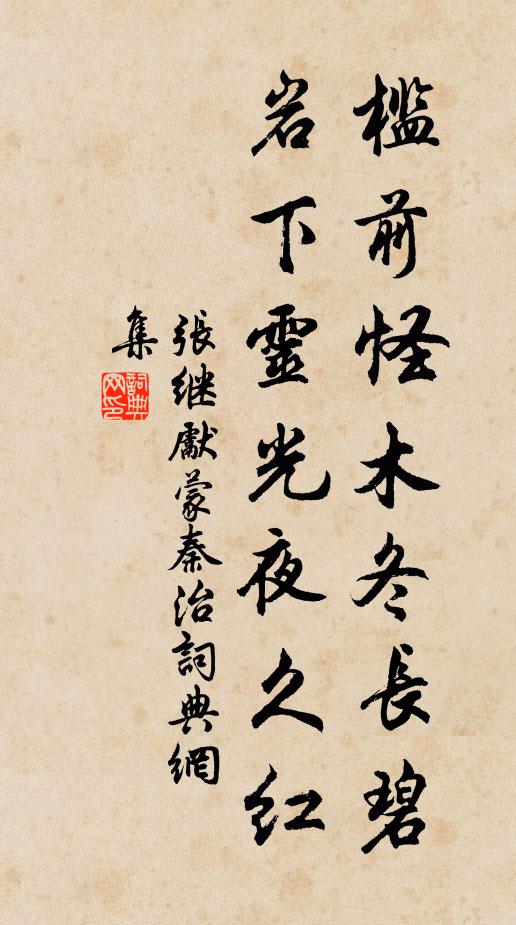 槛前怪木冬長碧
岩下靈光夜久红
張继獻蒙秦治詞典網
集
詞典网印